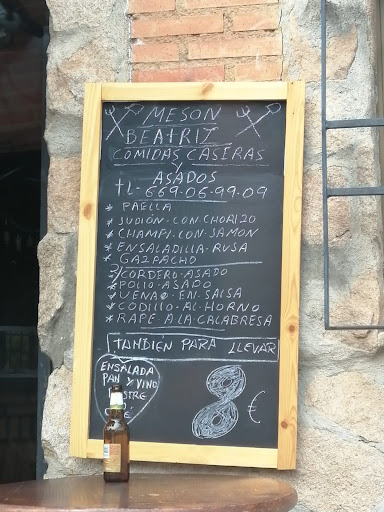 MESON
BEATRIZ
COMIDAS CASERAS
Y
ASADOS
tl-669-06-99-09
* PAELLA
* JUDIÓN-CON-CHORIZO
* CHAMPI.CON-JAMON
* ENSALADILLA-RUSA
* GAZPACHO
2/CORDERO-ASADO
* POLLO-ASADO
* VENAO-EN-SALSA
* CODILLO-AL-HORNO
* RAPE-A LA CALABRESA
TANBIÉN PARA LLEVAR
ENSALADA
PAN Y VINO
8 €